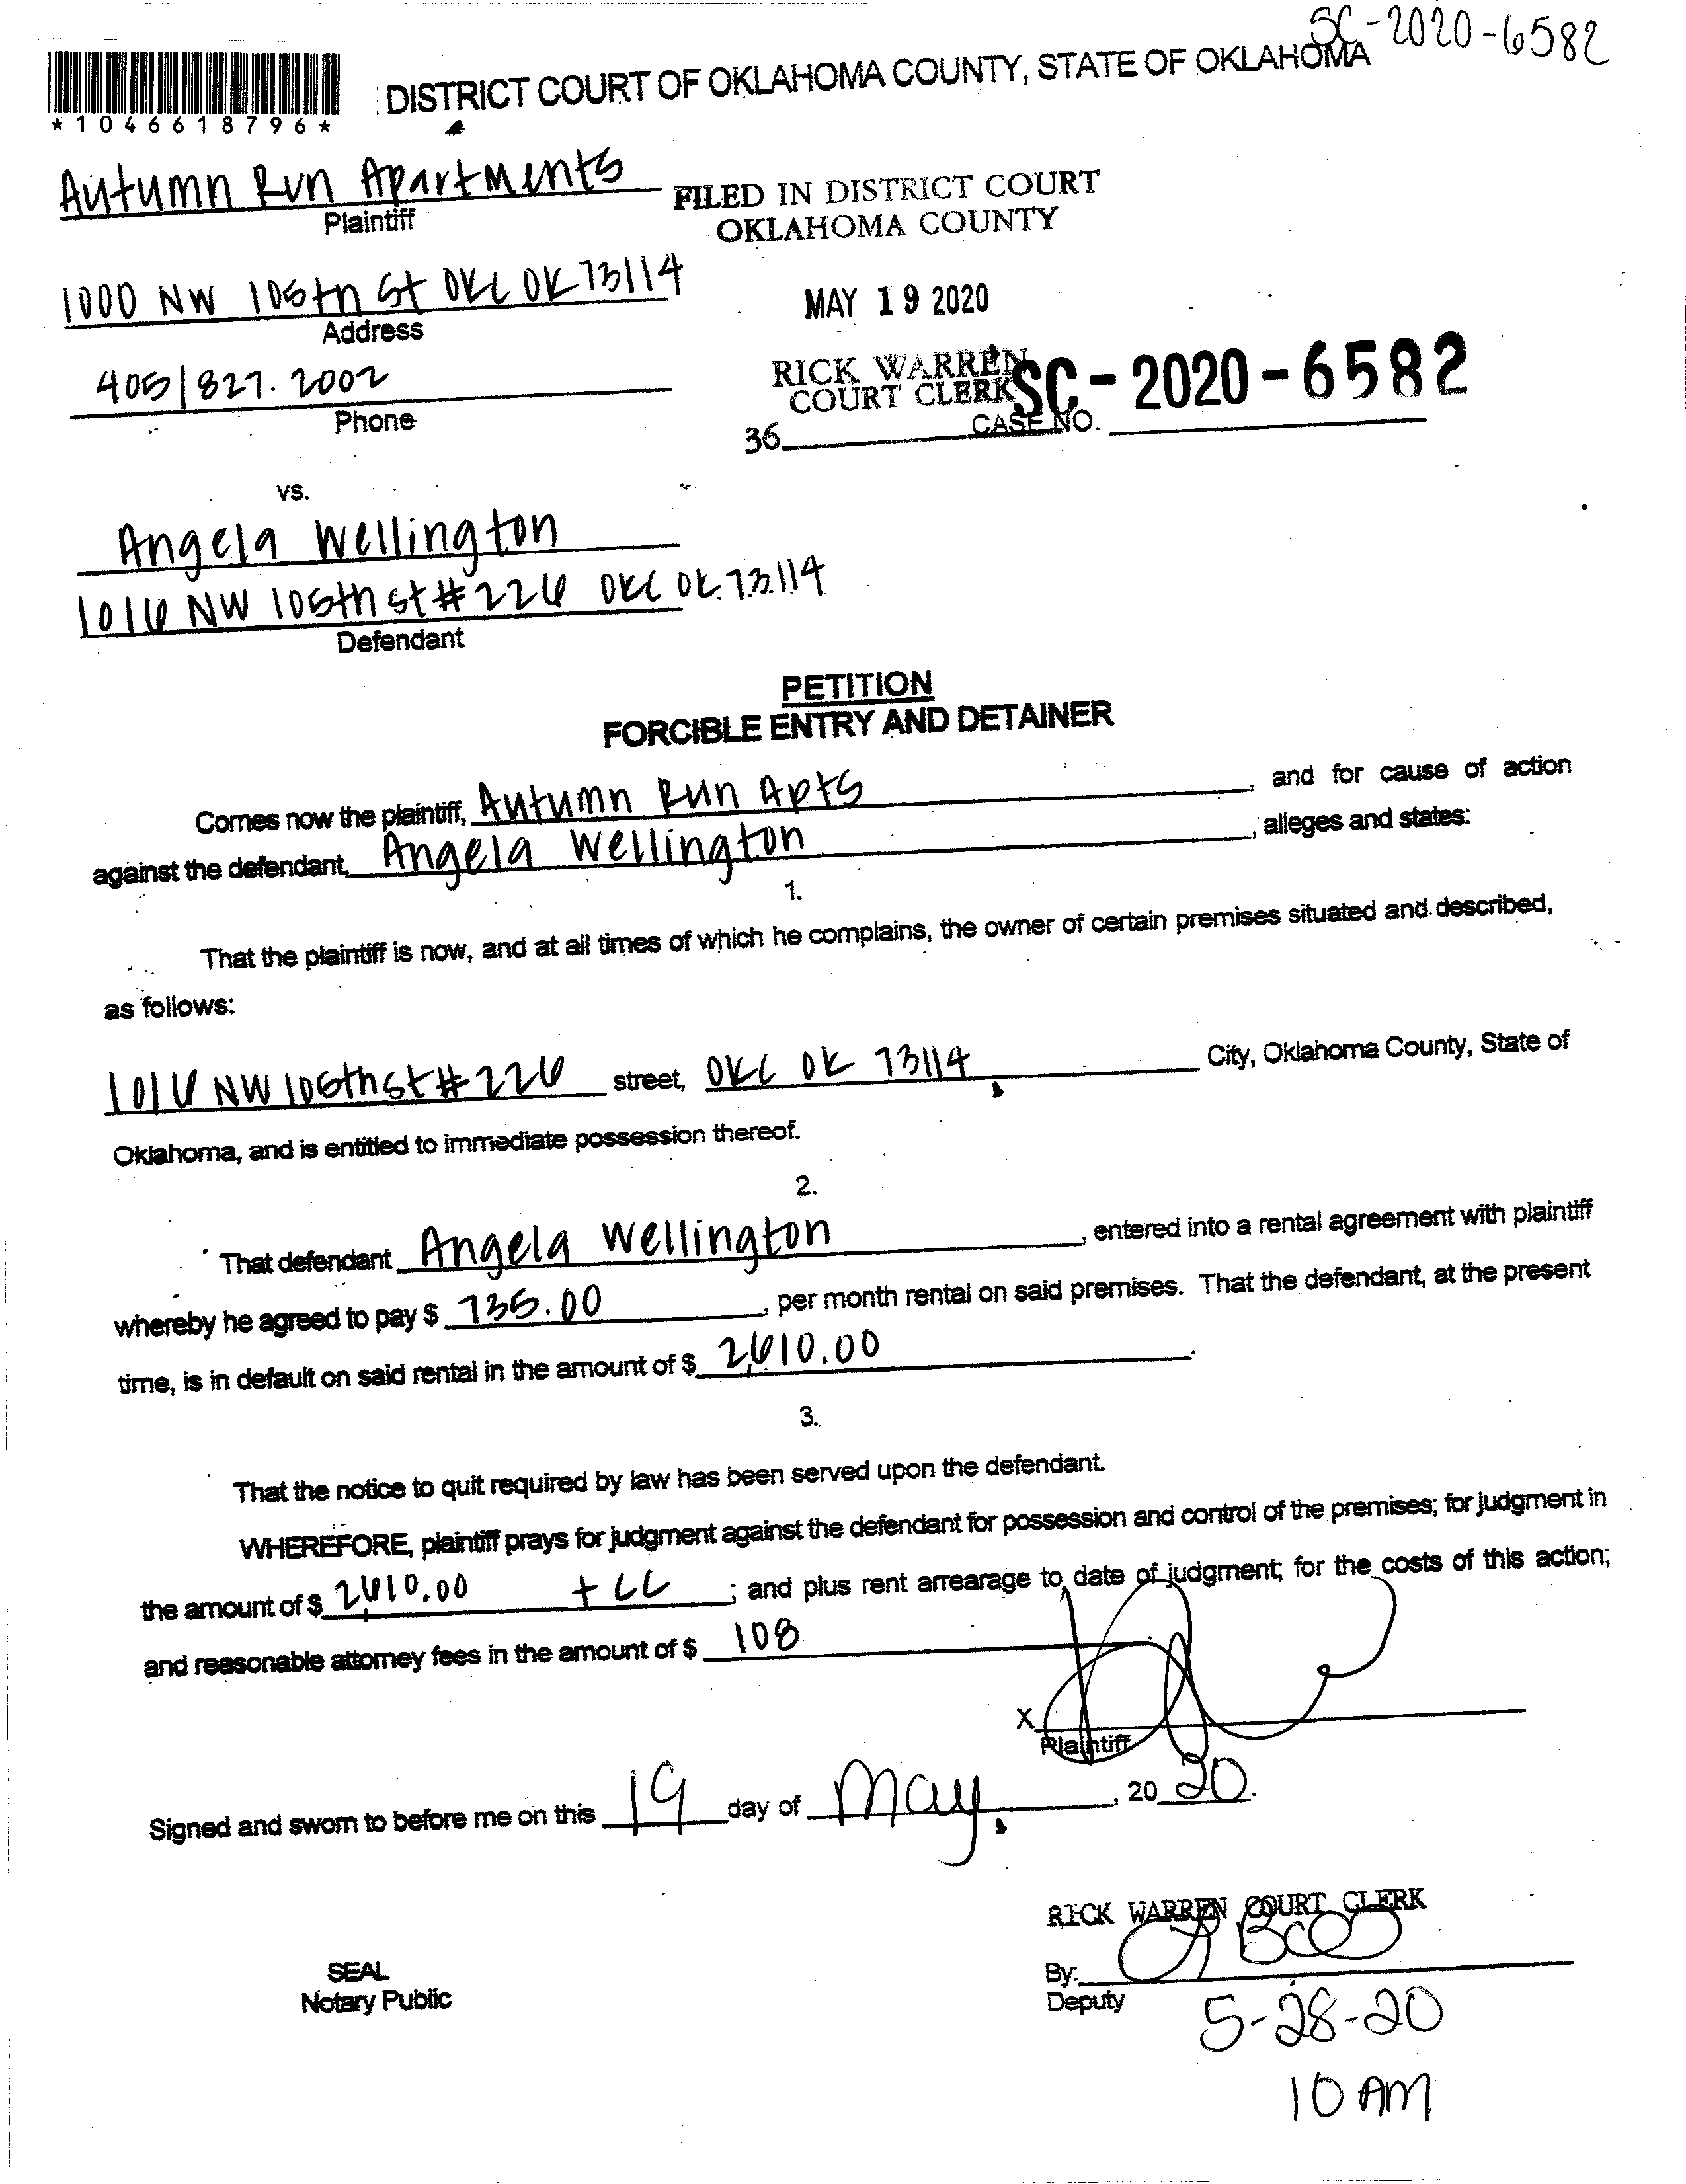 SC-2020-6582
DISTRICT COURT OF OKLAHOMA COUNTY, STATE OF OKLAHOMA
*1046618796*
Autumn Run Apartments
Plaintiff
FILED IN DISTRICT COURT
OKLAHOMA COUNTY
1000 NW 105th St OKC OK 73114
Address
MAY 19 2020
405|827.2002
Phone
RICK WARREN
COURT CLERK
SC-2020-6582
36
CASE NO.
vs.
Angela Wellington
1016 NW 106th st #226 OKC OK 73114
Defendant
PETITION
FORCIBLE ENTRY AND DETAINER
Comes now the plaintiff, Autumn Run Apts, and for cause of action
against the defendant, Angela Wellington, alleges and states:
1.
That the plaintiff is now, and at all times of which he complains, the owner of certain premises situated and described,
as follows:
1016 NW 106th st #226 street, OKC OK 73114 City, Oklahoma County, State of
Oklahoma, and is entitled to immediate possession thereof.
2.
That defendant Angela Wellington, entered into a rental agreement with plaintiff
whereby he agreed to pay $ 735.00, per month rental on said premises. That the defendant, at the present
time, is in default on said rental in the amount of $ 2,610.00.
3.
That the notice to quit required by law has been served upon the defendant.
WHEREFORE, plaintiff prays for judgment against the defendant for possession and control of the premises; for judgment in
the amount of $ 2,610.00 + CC; and plus rent arrearage to date of judgment; for the costs of this action;
and reasonable attorney fees in the amount of $ 108
X
Plaintiff
Signed and sworn to before me on this 19 day of May, 2020.
RICK WARREN COURT CLERK
SEAL
Notary Public
By:
Deputy
5-28-20
10 AM